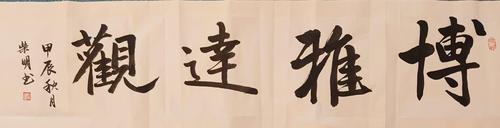 博雅達觀
甲辰秋月
柴明书